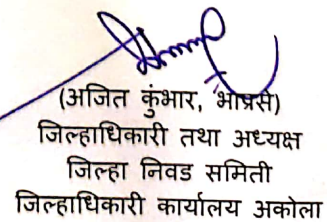 (अजित कुंभार, भाप्रसे)
जिल्हाधिकारी तथा अध्यक्ष
जिल्हा निवड समिती
जिल्हाधिकारी कार्यालय अकोला